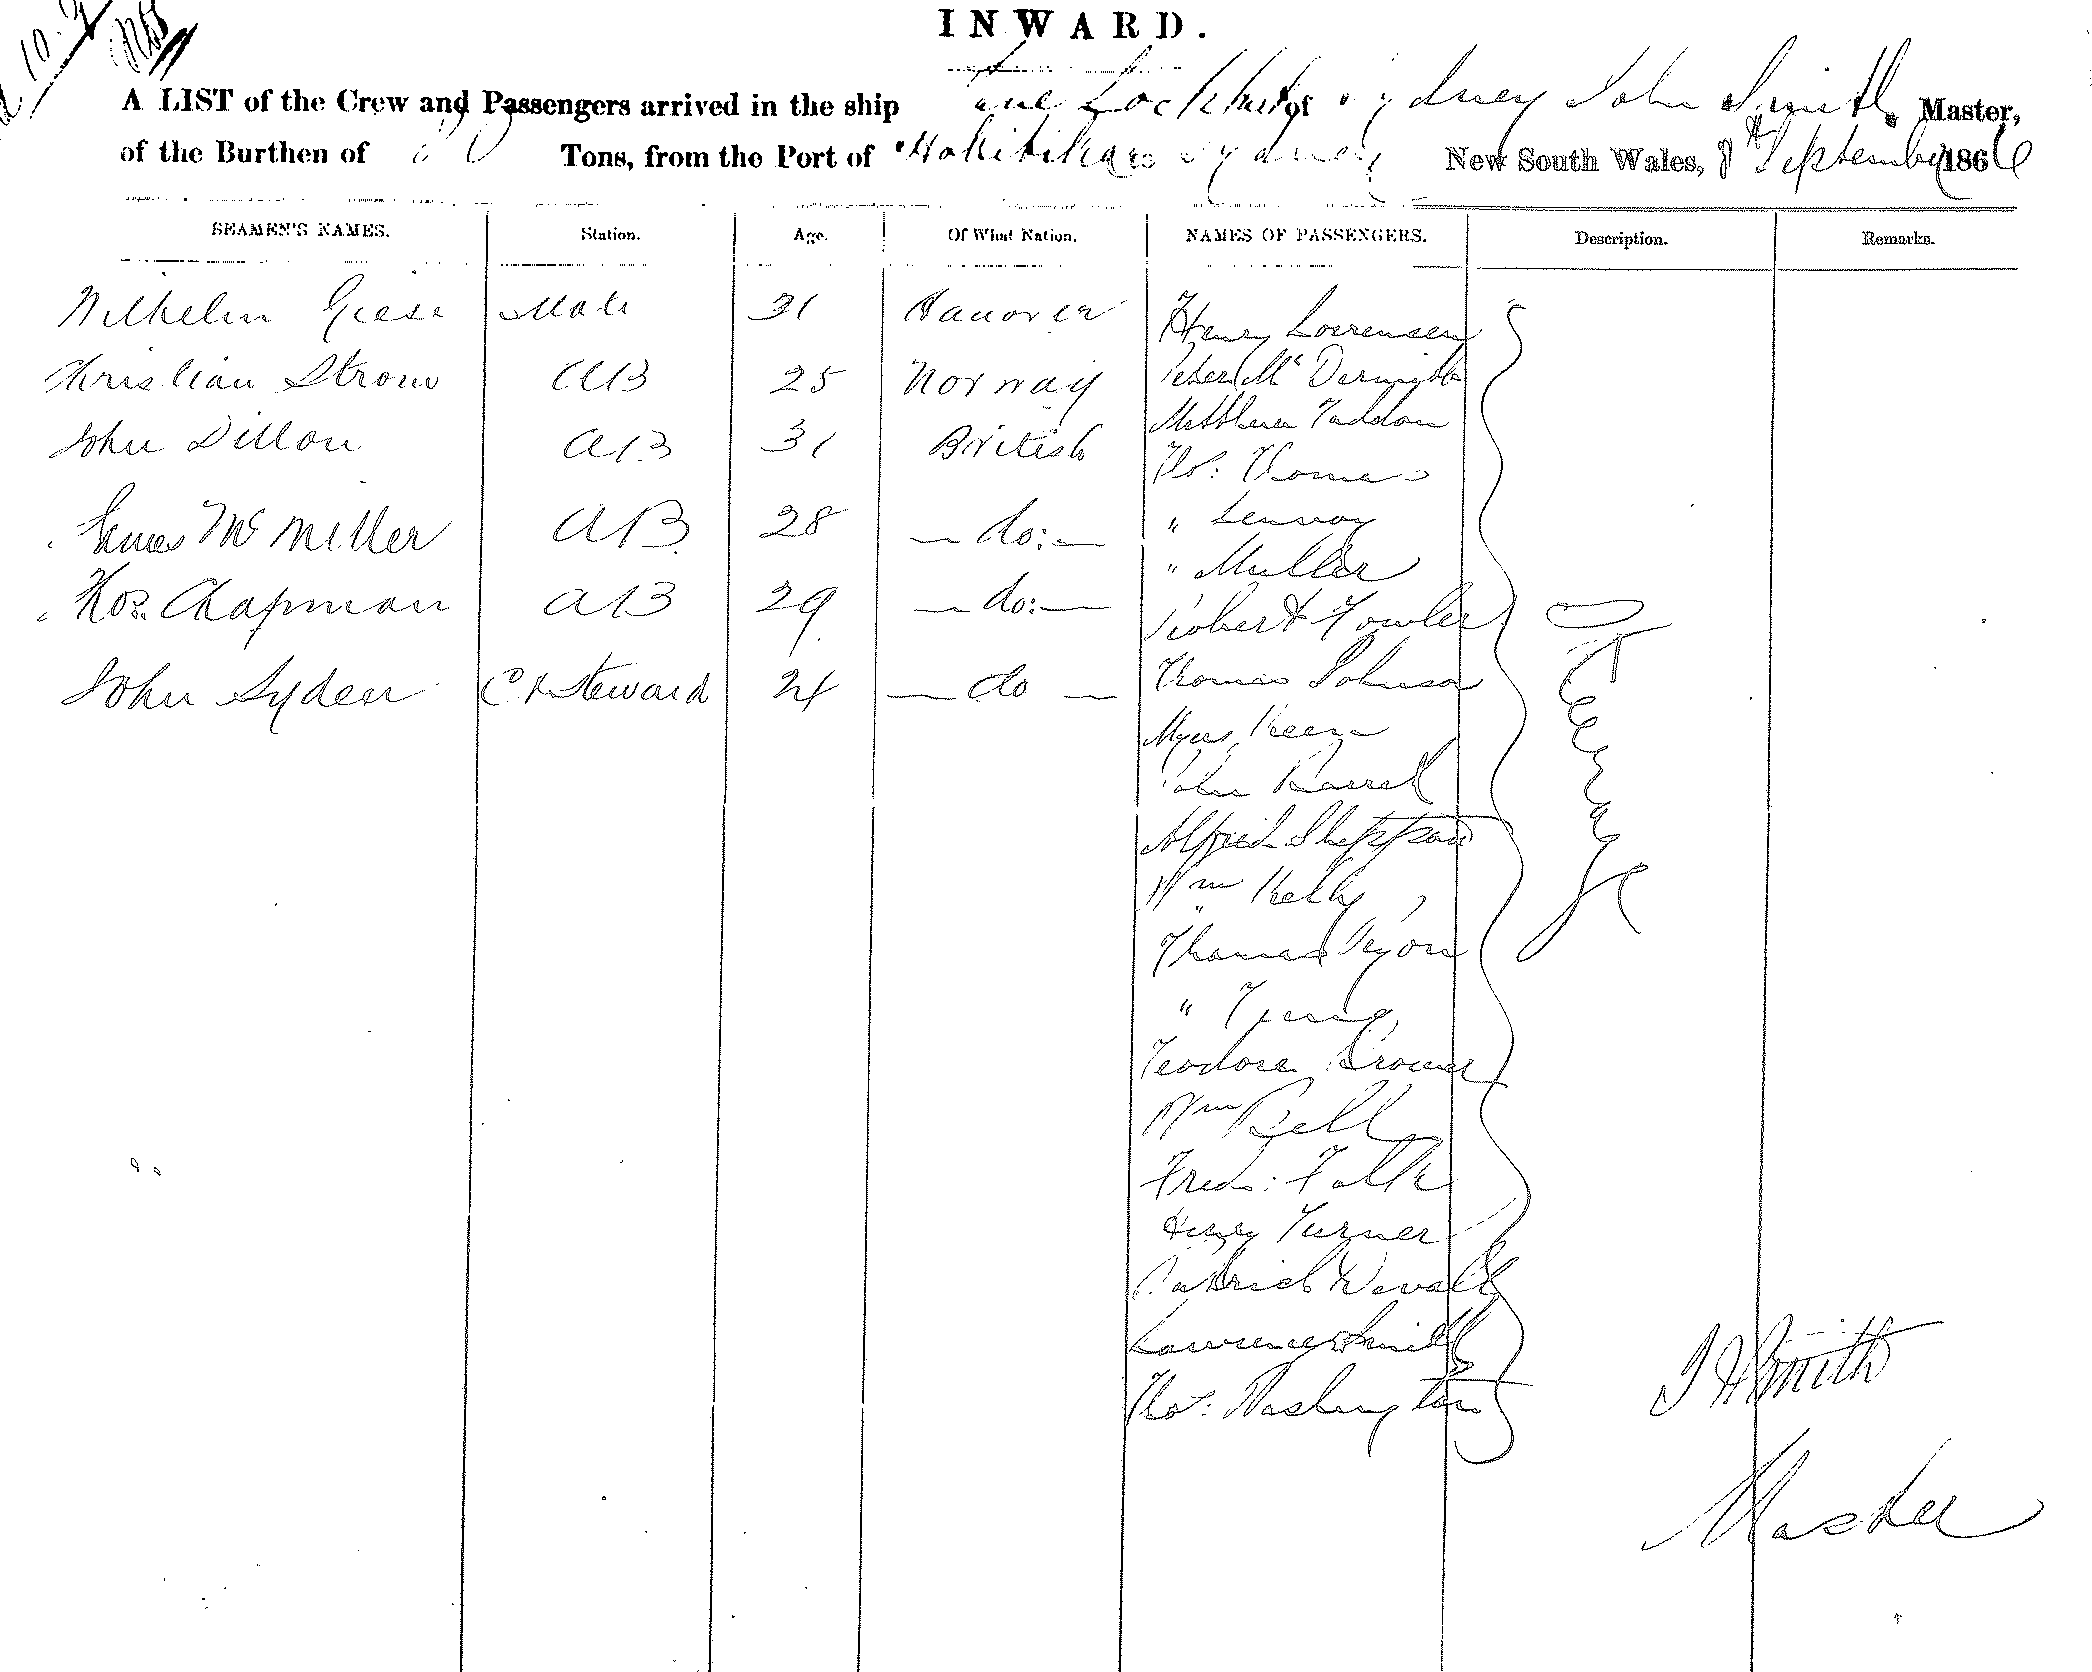 INWARD.
A LIST of the Crew and Passengers arrived in the ship Lockhart of Sydney John Smith Master,
of the Burthen of Tons, from the Port of Hokitika to Sydney New South Wales, 8th September 1866
SEAMEN'S NAMES. Station. Age. Of What Nation. NAMES OF PASSENGERS. Description. Remarks.
Wilhelm Giese Mate 31 Hanover
Christian Strom AB 25 Norway
John Dillon AB 31 British
James McMiller AB 28 — do: —
Thos. Chapman AB 29 — do: —
John Syden Ck & Steward 24 — do —
Henry Lorensen
Peter McDermott
Matthew Taddon
Thos: Thomas
" Lenvoy
" Muller
Robert Fowler
Thomas Johnson
Myers Keen
John Barrel
Alfred Sheppard
Wm Kelly
Thomas Tyson
" Young
Teodore Brown
Wm Bell
Fred: Falk
Henry Turner
Patrick Devall
Lawrence Smith
Thos: Washington
Steerage
J H Smith
Master